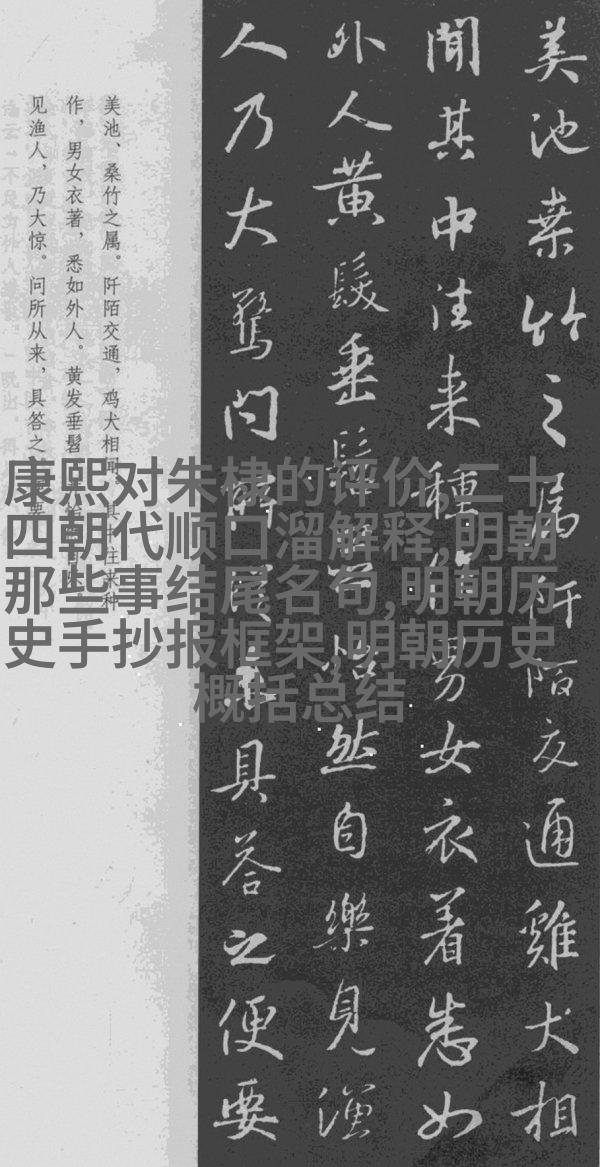 美池桒竹之属阡陌交通雞犬相
聞其中往来種作男女衣着悉如
外人黄髮垂髫並怡然自樂見漁
人乃大驚问所从来具荅之便要
美池、桑竹之属。阡陌交通，鸡犬相闻。其中往来种
作，男女衣著，悉如外人。黄发垂髫
见渔人，乃大惊。问所从来，具答之
康熙对朱棣的评价,二十
四朝代顺口溜解释,明朝
那些事结尾名句,明朝历
史手抄报框架,明朝历史
概括总结